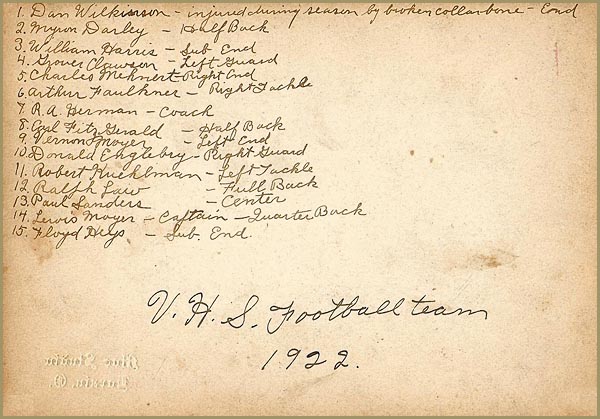 1. Dan Wilkinson - injured during season by broken collarbone - End
2. Myron Darley - Half Back
3. William Harris - Sub End
4. Grover Clawson - Left Guard
5. Charles Mehnert - Right End
6. Arthur Faulkner - Right Tackle
7. R.A. Herman - Coach
8. Carl FitzGerald - Half Back
9. Vernon Moyer - Left End
10. Donald Englebry - Right Guard
11. Robert Kuehlman - Left Tackle
12. Ralph Law - Full Back
13. Paul Sanders - Center
14. Lewis Moyer - Captain - Quarter Back
15. Floyd Heys - Sub. End.
V. H. S. Football team
1922.